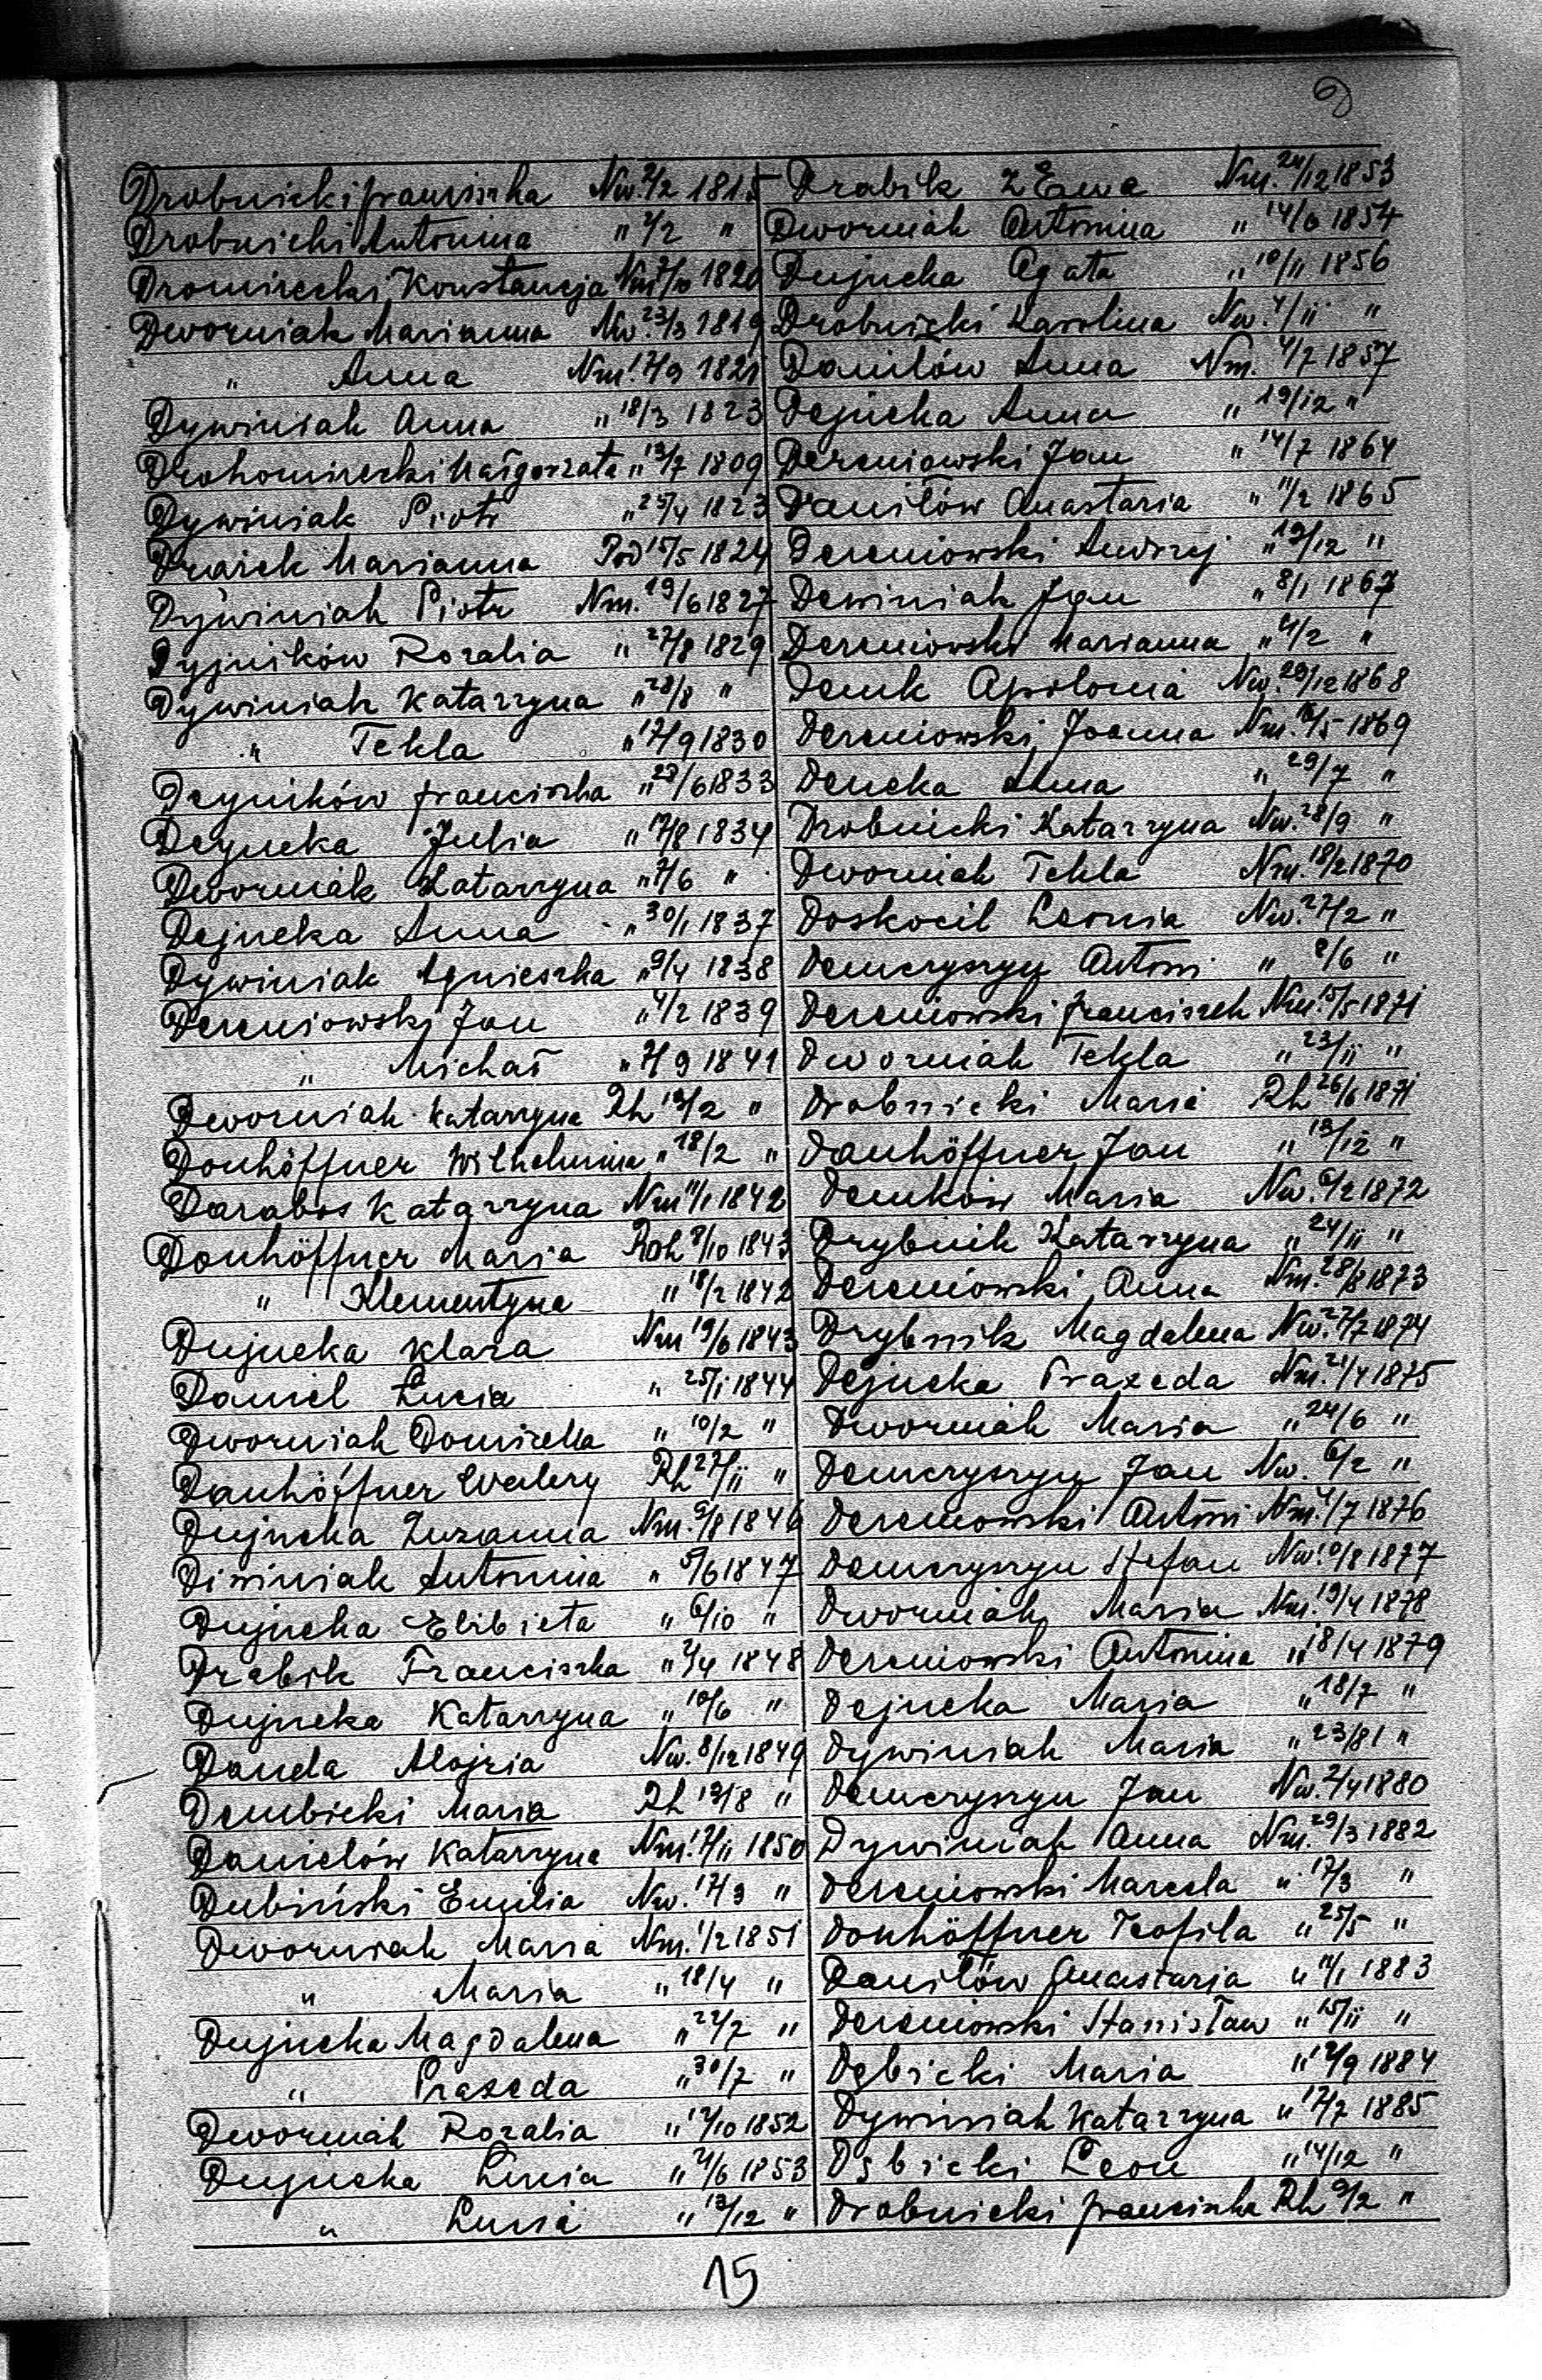 Drobnicki Franciszka Nw. 2/2 1815
Drobnicki Antonina " 2/2 "
Dromirecki Konstancja Nm 1820
Dworniak Marianna Nw. 23/3 1819
" Anna Nm. 17/9 1821
Dywiniak Anna " 18/3 1823
Drohomirecki Małgorzata " 13/7 1809
Dywiniak Piotr " 25/4 1823
Marianna Pod 15/5 1824
Dywiniak Piotr Nm. 19/6 1827
Dyjników Rozalia " 27/8 1829
Dywiniak Katarzyna " 28/8 "
" Tekla " 17/9 1830
Dejników Franciszka " 28/6 1833
Dejneka Julia " 17/8 1834
Dworniak Katarzyna " 7/6 "
Dejneka Anna " 30/1 1837
Dywiniak Agnieszka " 9/4 1838
Dereniowski Jan " 4/2 1839
" Michał " 7/9 1841
Dworniak Katarzyna Rh 12/2 "
Donhöffner Wilhelmina " 18/2 "
Darabos Katarzyna Nm 11/1 1842
Donhöffner Maria Roh 8/10 1843
" Klementyna " 18/2 1842
Dujneka Klara Nm 19/6 1843
Daniel Łucia " 25/1 1844
Dworniak Domicella " 10/2 "
Danhöffner Walery Rh 27/11 "
Dujneka Zuzanna Nm. 5/8 1846
Diwiniak Antonina " 5/6 1847
Dujneka Elżbieta " 6/10 "
Drabik Franciszka " 2/4 1848
Dujneka Katarzyna " 10/6 "
Danda Alojzia Nw. 8/12 1849
Dembicki Maria Rh 12/8 "
Danielów Katarzyna Nm. 17/11 1850
Dubiński Emilia Nw. 17/3 "
Dworniak Maria Nm. 1/2 1851
" Maria " 18/4 "
Dujneka Magdalena " 22/7 "
" Prazeda " 30/7 "
Dworniak Rozalia " 12/10 1852
Dujneka Łucia " 4/6 1853
" Łucia " 13/12 "
Drabik z Ewa Nm. 24/12 1853
Dworniak Antonina " 14/6 1854
Dujneka Agata " 10/11 1856
Drobnicki Karolina Nw. 4/11 "
Daniłów Anna Nm. 4/7 1857
Dejneka Anna " 19/12 "
Dereniowski Jan " 14/7 1864
Daniłów Anastazia " 11/2 1865
Dereniowski Andrzej " 19/12 "
Dewiniak Jan " 8/1 1867
Dereniowski Marianna " 4/2 "
Demk Apolonia Nw. 29/12 1868
Dereniowski Joanna Nm. 16/5 1869
Deneka Anna " 29/7 "
Drobnicki Katarzyna Nw. 28/9 "
Dworniak Tekla Nm. 18/2 1870
Doskocil Leonia Nw. 27/2 "
Demczyszyn Antoni " 8/6 "
Dereniowski Franciszek Nm. 15/5 1871
Dworniak Tekla " 23/11 "
Drobnicki Maria Rh 26/6 1871
Danhöffner Jan " 13/12 "
Demków Maria Nw. 6/2 1872
Drybnik Katarzyna " 24/11 "
Dereniowski Anna Nm. 28/8 1873
Drybnik Magdalena Nw. 27/7 1874
Dejneka Prazeda Nm. 21/4 1875
Dworniak Maria " 24/6 "
Demczyszyn Jan Nw. 6/2 "
Dereniowski Antoni Nm. 4/7 1876
Demczyszyn Stefan Nw. 10/8 1877
Dworniak Maria Nm. 19/4 1878
Dereniowski Antonina " 18/4 1879
Dejneka Maria " 18/7 "
Dywiniak Maria " 23/81 "
Demczyszyn Jan Nw. 2/4 1880
Dywiniak Anna Nm. 29/3 1882
Dereniowski Marcela " 17/3 "
Donhöffner Teofila " 25/5 "
Daniłów Anastazja " 11/1 1883
Dereniowski Stanisław " 15/11 "
Dębicki Maria " 12/9 1884
Dywiniak Katarzyna " 17/7 1885
Dębicki Leon " 14/12 "
Drobnicki Franciszka Rh 9/2 "
15